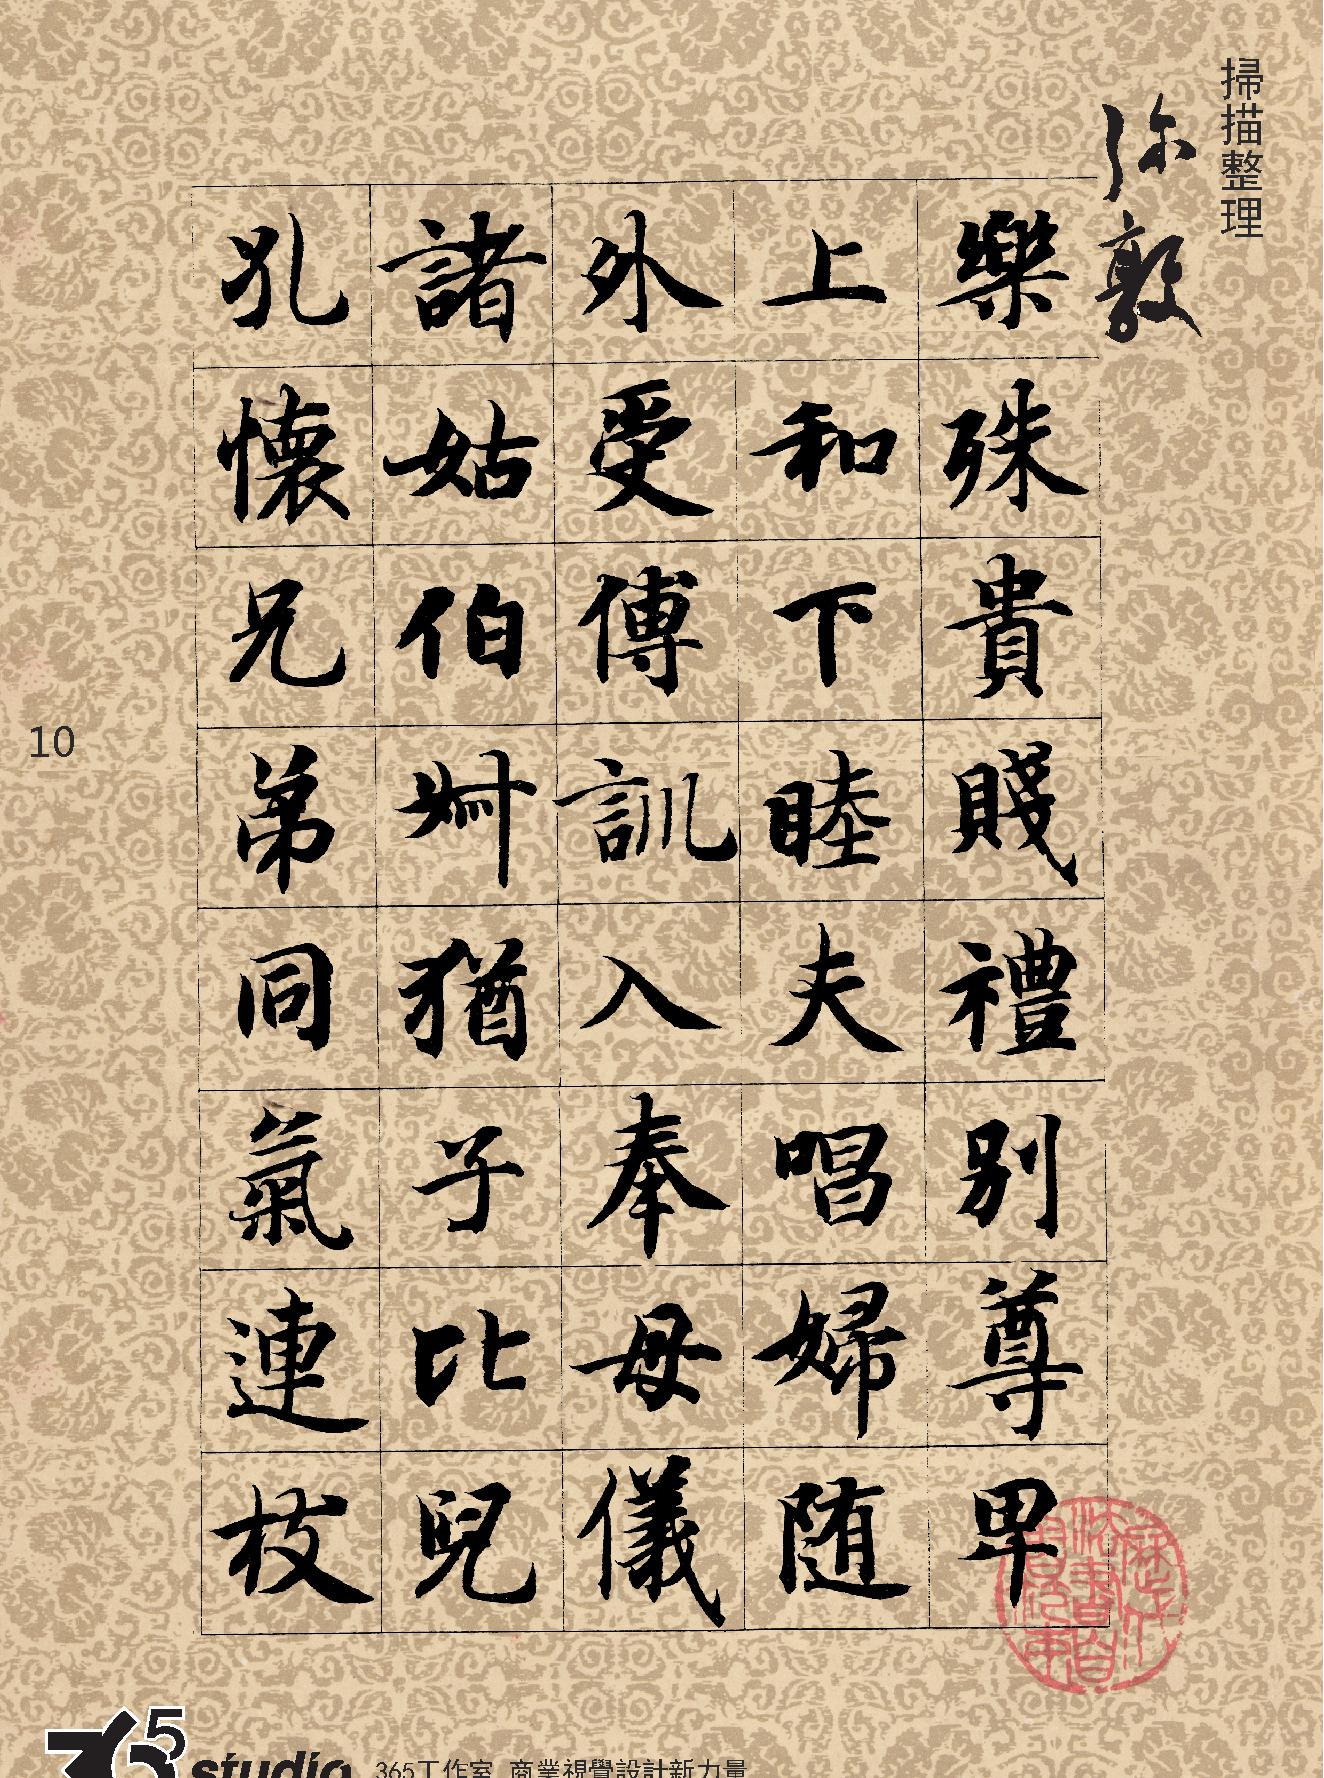 掃描整理
弥敦
樂殊貴賤禮别尊卑
上和下睦夫唱婦随
外受傅訓入奉母儀
諸姑伯叔猶子比兒
孔懷兄弟同氣連枝
10
365 studio 365工作室 商業視覺設計新力量